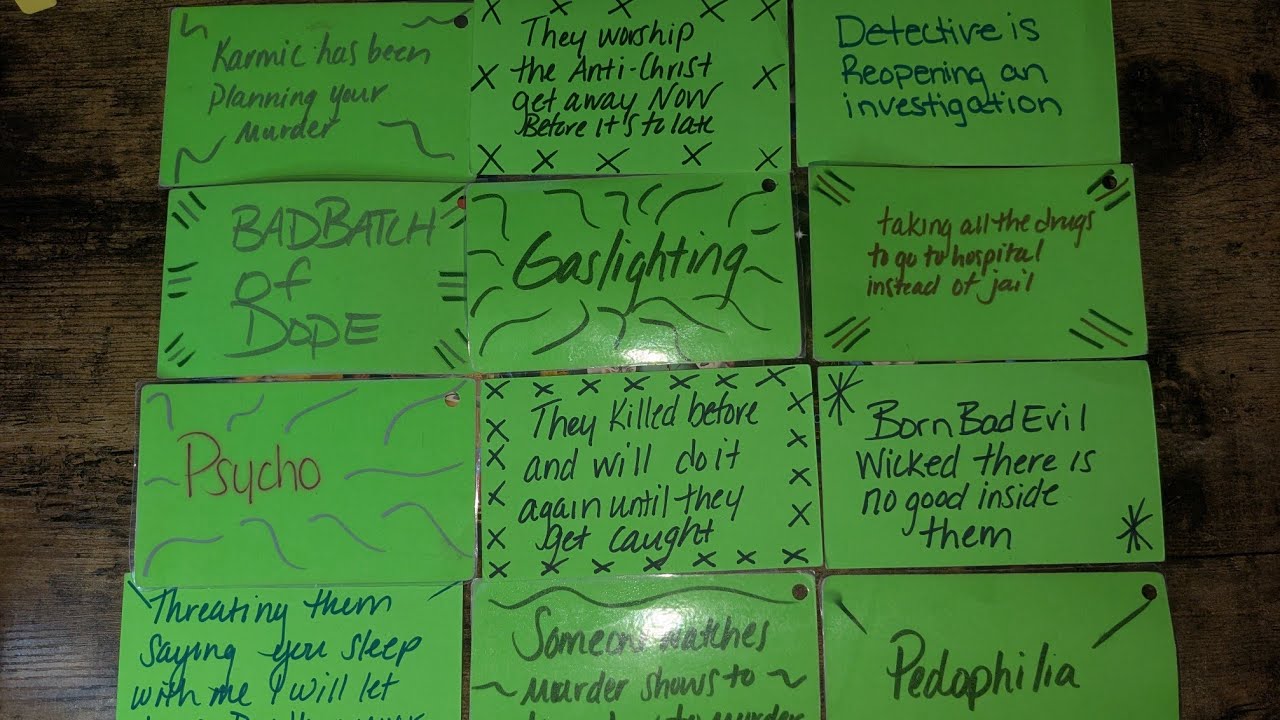 Karmic has been
Planning your
Murder
They worship
the Anti-Christ
get away NOW
Before it's to late
Detective is
Reopening an
investigation
BAD BATCH
of
DOPE
Gaslighting
taking all the drugs
to go to hospital
instead of jail
Psycho
They Killed before
and will do it
again until they
get caught
Born Bad Evil
Wicked there is
no good inside
them
Threating them
saying you sleep
with me I will let
Someone watches
Murder shows to
Murder
Pedophilia